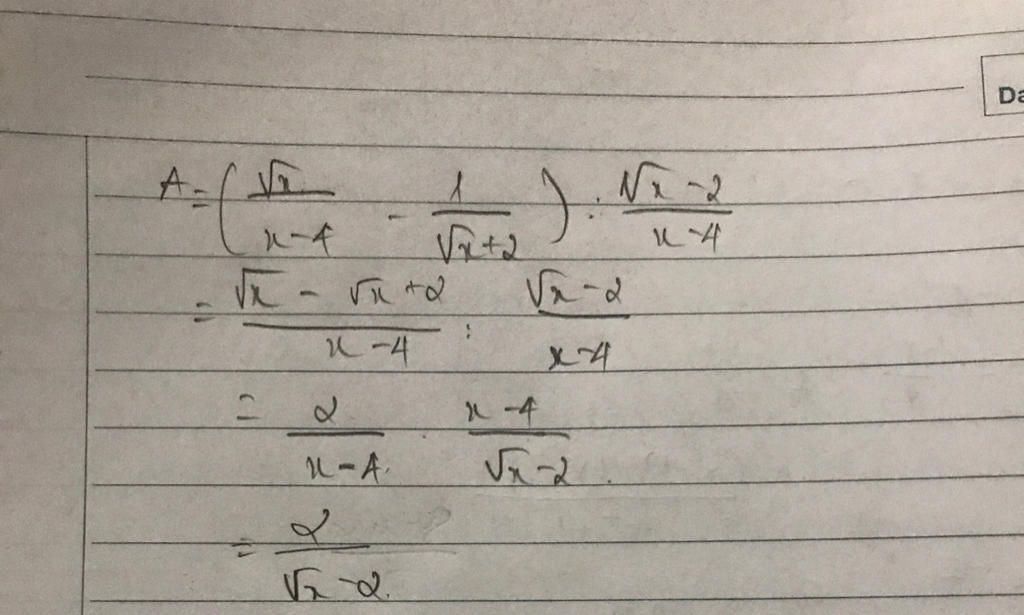 Da
A = (√x/(x-4) - 1/(√x+2)) : (√x-2)/(x-4)
= (√x - √x+2)/(x-4) : (√x-2)/(x-4)
= 2/(x-4) . (x-4)/(√x-2).
= 2/(√x-2).